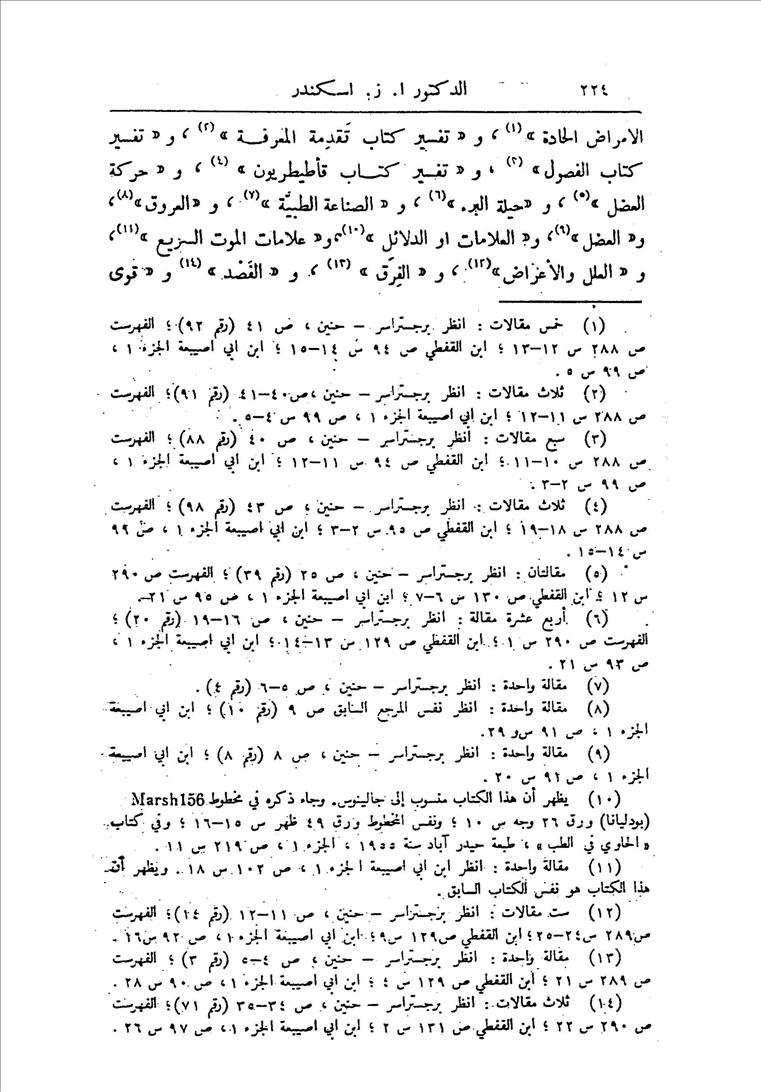 ٢٢٤ الدكتور ا. ز. اسكندر
الامراض الحادة »(١)، و « تفسير كتاب تَقدِمة المعرفة »(٢)، و « تفسير
كتاب الفصول»(٣) ، و « تفسير كتاب قأطيطريون »(٤) ، و « حركة
العضل »(٥)، و «حيلة البرء»(٦) ، و « الصناعة الطبيَّة »(٧)، و «العروق»(٨)،
و« العضل »(٩)، و« العلامات او الدلائل »(١٠)، و« علامات الموت السريع »(١١)،
و « العلل والأعراض»(١٢)، و « الفِرَق » (١٣) ، و « الفَصْد » (١٤) و « قوى
(١) خمس مقالات : انظر برجستراسر – حنين ، ص ٤١ (رقم ٩٢) ؛ الفهرست
ص ٢٨٨ س ١٢–١٣ ؛ ابن القفطي ص ٩٤ س ١٤–١٥ ؛ ابن ابي اصيبعة الجزء ١ ،
ص ٩٩ س ٥ .
(٢) ثلاث مقالات : انظر برجستراسر – حنين ،ص ٤٠–٤١ (رقم ٩١)؛ الفهرست
ص ٢٨٨ س ١١–١٢ ؛ ابن ابي اصيبعة الجزء ١ ، ص ٩٩ س ٤–٥ .
(٣) سبع مقالات : أنظر برجستراسر – حنين ، ص ٤٠ (رقم ٨٨) ؛ الفهرست
ص ٢٨٨ س ١٠–١١ ؛ ابن القفطي ص ٩٤ س ١١–١٢ ؛ ابن ابي اصيبعة الجزء ١ ،
ص ٩٩ س ٢–٣ .
(٤) ثلاث مقالات : أنظر برجستراسر – حنين ، ص ٤٣ (رقم ٩٨) ؛ الفهرست
ص ٢٨٨ س ١٨–١٩ ؛ ابن القفطي ص ٩٥ س ٢–٣ ؛ ابن ابي اصيبعة الجزء ١ ، ص ٩٩
س ١٤–١٥ .
(٥) مقالتان : انظر برجستراسر – حنين ، ص ٢٥ (رقم ٣٩) ؛ الفهرست ص ٢٩٠
س ١٢ ؛ ابن القفطي ص ١٣٠ س ٦–٧ ؛ ابن ابي اصيبعة الجزء ١ ، ص ٩٥ س ٢١.
(٦) أربع عشرة مقالة : انظر برجستراسر – حنين ، ص ١٦–١٩ (رقم ٢٠) ؛
الفهرست ص ٢٩٠ س ١ ؛ ابن القفطي ص ١٢٩ س ١٣–١٤ ؛ ابن ابي اصيبعة الجزء ١ ،
ص ٩٣ س ٢١ .
(٧) مقالة واحدة : انظر برجستراسر – حنين ، ص ٥–٦ (رقم ٤) .
(٨) مقالة واحدة : انظر نفس المرجع السابق ص ٩ (رقم ١٠) ؛ ابن ابي اصيبعة
الجزء ١ ، ص ٩١ س و ٢٩ .
(٩) مقالة واحدة : انظر برجستراسر – حنين ، ص ٨ (رقم ٨) ؛ ابن ابي اصيبعة
الجزء ١ ، ص ٩١ س ٢٠ .
(١٠) يظهر أن هذا الكتاب منسوب إلى جالينوس. وجاء ذكره في مخطوط Marsh156
(بودليانا) ورق ٢٦ وجه س ١٠ ؛ ونفس المخطوط ورق ٤٩ ظهر س ١٥–١٦ ؛ وفي كتاب
« الحاوي في الطب » ، طبعة حيدر آباد سنة ١٩٥٥ ، الجزء ١ ، ص ٢١٩ س ١١ .
(١١) مقالة واحدة : انظر ابن ابي اصيبعة الجزء ١ ، ص ١٠٢ س ١٨ . ويظهر أن
هذا الكتاب هو نفس الكتاب السابق .
(١٢) ست مقالات : أنظر برجستراسر – حنين ، ص ١١–١٢ (رقم ١٤)؛ الفهرست
ص٢٨٩ س٢٤–٢٥؛ ابن القفطي ص١٢٩ س٩؛ ابن ابي اصيبعة الجزء ١ ، ص ٩٢ س١٦ .
(١٣) مقالة واحدة : أنظر برجستراسر – حنين ، ص ٤–٥ (رقم ٣) ؛ الفهرست
ص ٢٨٩ س ٢١ ؛ ابن القفطي ص ١٢٩ س ٤ ؛ ابن ابي اصيبعة الجزء ١ ، ص ٩٠ س ٢٨ .
(١٤) ثلاث مقالات : أنظر برجستراسر – حنين ، ص ٣٤–٣٥ (رقم ٧١)؛ الفهرست
ص ٢٩٠ س ٢٢ ؛ ابن القفطي ص ١٣١ س ٢ ؛ ابن ابي اصيبعة الجزء ١ ، ص ٩٧ س ٢٦ .